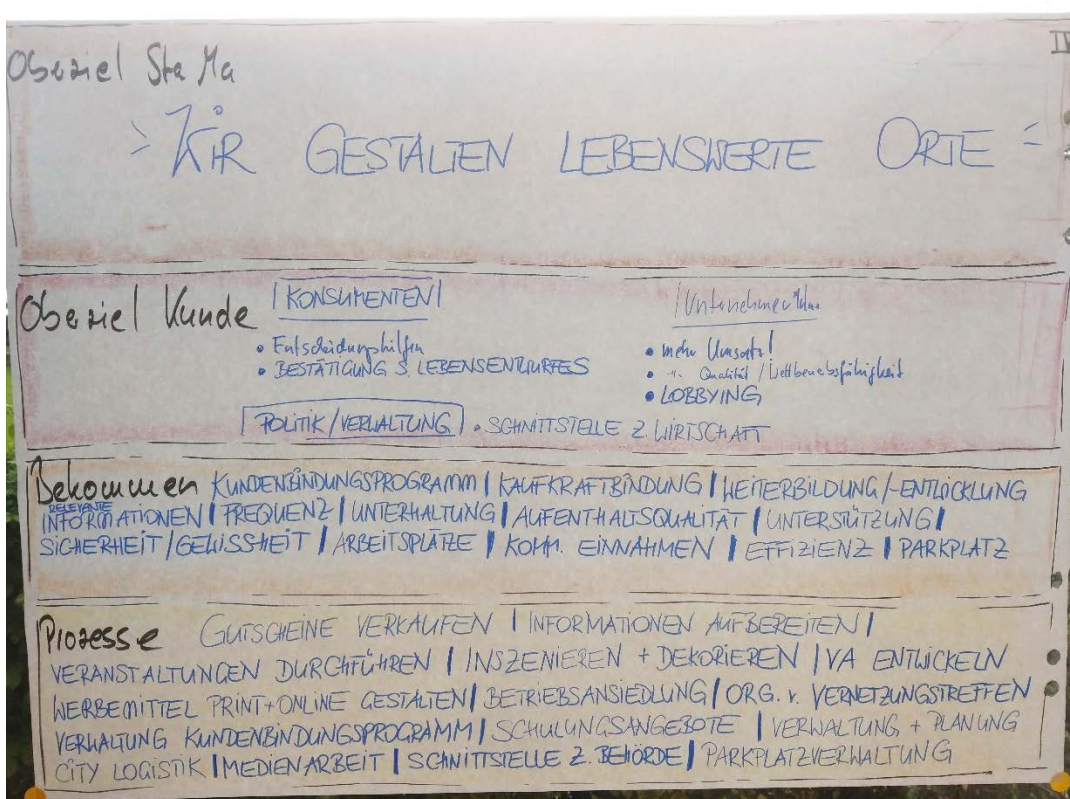 Oberziel StaMa
IV
> WIR GESTALTEN LEBENSWERTE ORTE =
Oberziel Kunde
KONSUMENTEN
• Entscheidungshilfen
• BESTÄTIGUNG S. LEBENSENTWURFES
Unternehmer
• mehr Umsatz!
• -"- Qualität / Wettbewerbsfähigkeit
• LOBBYING
POLITIK/VERWALTUNG • SCHNITTSTELLE Z. WIRTSCHAFT
Bekommen KUNDENBINDUNGSPROGRAMM | KAUFKRAFTBINDUNG | WEITERBILDUNG/-ENTWICKLUNG
RELEVANTE
INFORMATIONEN | FREQUENZ | UNTERHALTUNG | AUFENTHALTSQUALITÄT | UNTERSTÜTZUNG |
SICHERHEIT/GEWISSHEIT | ARBEITSPLÄTZE | KOMM. EINNAHMEN | EFFIZIENZ | PARKPLATZ
Prozesse GUTSCHEINE VERKAUFEN | INFORMATIONEN AUFBEREITEN |
VERANSTALTUNGEN DURCHFÜHREN | INSZENIEREN + DEKORIEREN | VA ENTWICKELN
WERBEMITTEL PRINT+ONLINE GESTALTEN | BETRIEBSANSIEDLUNG | ORG. v. VERNETZUNGSTREFFEN
VERWALTUNG KUNDENBINDUNGSPROGRAMM | SCHULUNGSANGEBOTE | VERWALTUNG + PLANUNG
CITY LOGISTIK | MEDIENARBEIT | SCHNITTSTELLE Z. BEHÖRDE | PARKPLATZVERWALTUNG